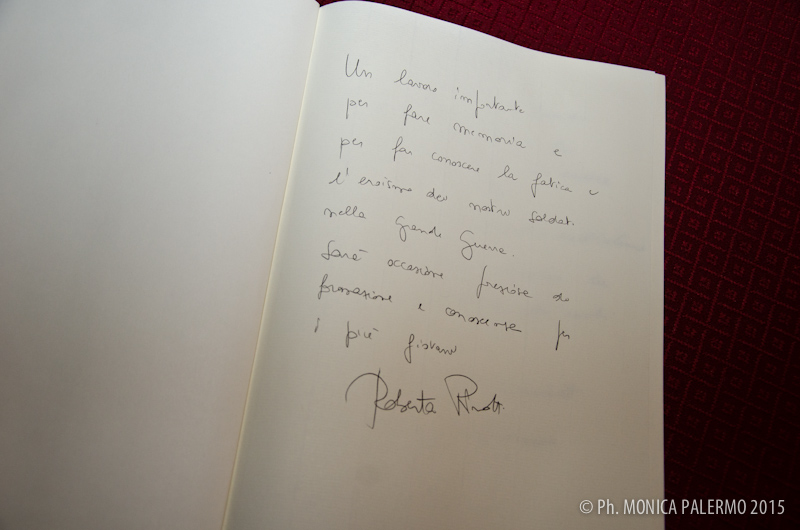 Un lavoro importante
per fare memoria e
per far conoscere la fatica e
l'eroismo dei nostri soldati
nella Grande Guerra.
Sarà occasione preziosa di
formazione e conoscenza per
i più giovani
Roberta Pinotti
© Ph. MONICA PALERMO 2015